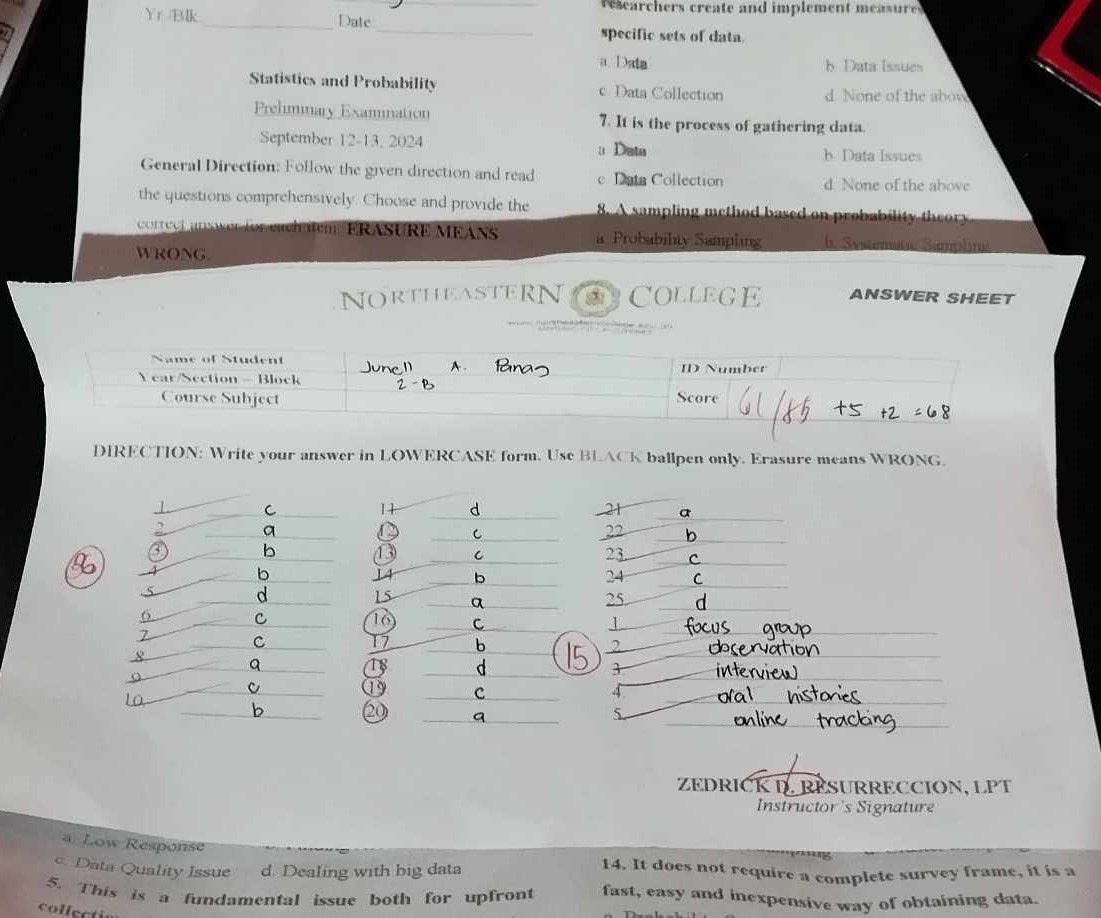 Yr./Blk
Date
Statistics and Probability
Preliminary Examination
September 12-13, 2024
General Direction: Follow the given direction and read
the questions comprehensively. Choose and provide the
correct answer for each item. ERASURE MEANS
WRONG.
researchers create and implement measures
specific sets of data.
a. Data b. Data Issues
c. Data Collection d. None of the above
7. It is the process of gathering data.
a. Data b. Data Issues
c. Data Collection d. None of the above
8. A sampling method based on probability theory.
a. Probability Sampling b. Systematic Sampling
NORTHEASTERN COLLEGE
ANSWER SHEET
Name of Student Junell A. Panag ID Number
Year/Section – Block 2-B
Course Subject Score 61/85 +5 +2 =68
DIRECTION: Write your answer in LOWERCASE form. Use BLACK ballpen only. Erasure means WRONG.
36
1 c
2 a
3 b
4 b
5 d
6 c
7 c
8 a
9 c
10 b
11 d
12 c
13 c
14 b
15 a
16 c
17 b
18 d
19 c
20 a
21 a
22 b
23 c
24 c
25 d
15
1 focus group
2 observation
3 interview
4 oral histories
5 online tracking
ZEDRICK D. RESURRECCION, LPT
Instructor's Signature
a. Low Response
c. Data Quality Issue d. Dealing with big data
5. This is a fundamental issue both for upfront
14. It does not require a complete survey frame, it is a
fast, easy and inexpensive way of obtaining data.